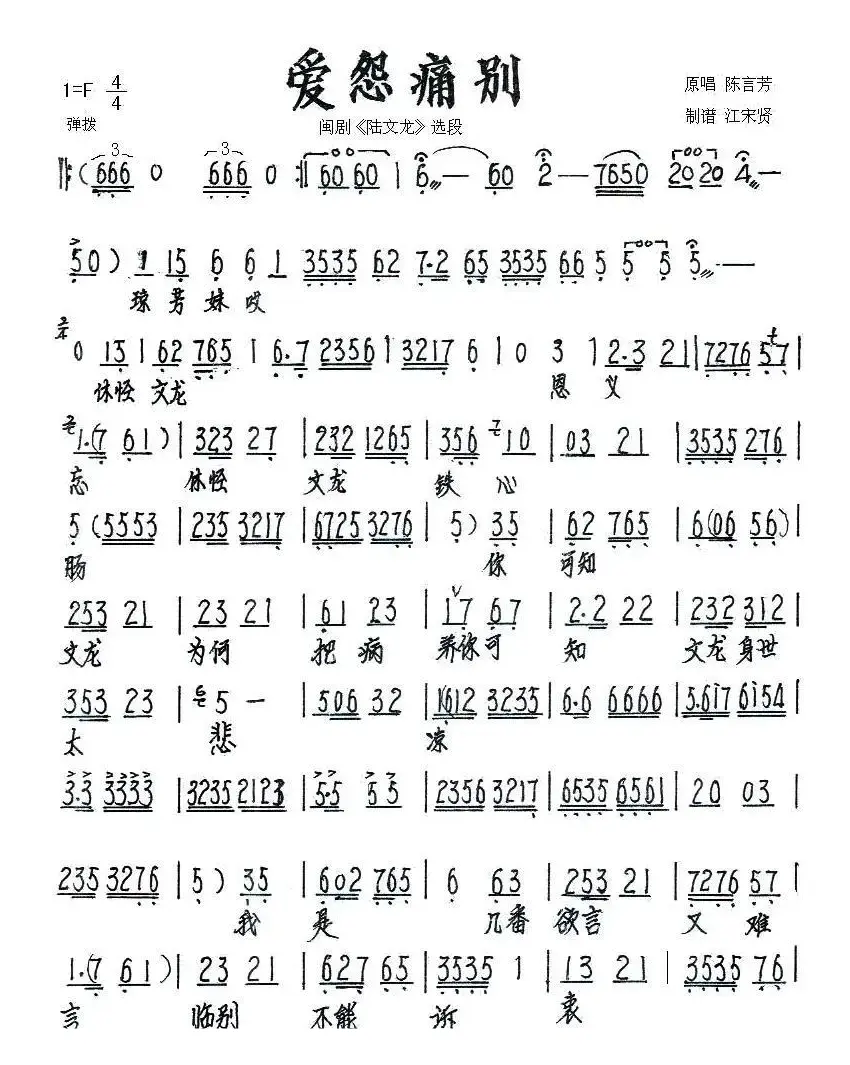 爱怨痛别
1=F 4/4
原唱 陈言芳
弹拨
闽剧《陆文龙》选段
制谱 江宋贤
(666 0 666 0 :|| 6060 | 6 — 60 2 — — 7650 2020 4 —
50) 1 15 6 6 1 3535 62 7·2 65 3535 66 5 5 5 5 — —
琼芳妹哎
0 13 | 62 765 | 6·7 2356 | 3217 6 | 0 3 | 2·3 21 | 7276 57 |
休怪 文龙 恩 义
1·(7 61) | 323 27 | 232 1265 | 356 10 | 03 21 | 3535 276 |
忘 休怪 文龙 铁 心
5 (5553 | 235 3217 | 6725 3276 | 5) 35 | 62 765 | 6(06 56) |
肠 你 可知
253 21 | 23 21 | 61 23 | 17 67 | 2·2 22 | 232 312 |
文龙 为何 把 病 养你可 知 文龙身世
353 23 | 5 — | 506 32 | 1612 3235 | 6·6 6666 | 5·617 6154 |
太 悲 凉
3·3 3333 | 3235 2123 | 5·5 55 | 2356 3217 | 6535 6561 | 20 03 |
235 3276 | 5) 35 | 602 765 | 6 63 | 253 21 | 7276 57 |
我 是 几番 欲言 又 难
1·(7 61) | 23 21 | 627 65 | 3535 1 | 13 21 | 3535 76 |
言 临别 不能 诉 衷